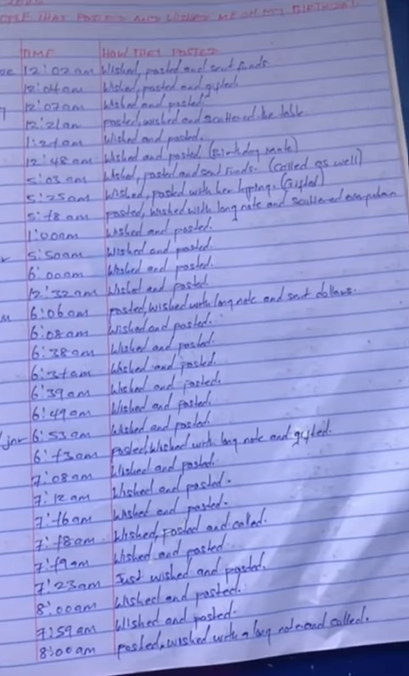 PEOPLE THAT POSTED AND WISHED ME ON MY BIRTHDAY
TIME HOW THEY POSTED
12:02am Wished, posted and sent funds.
12:04am Wished, posted and gifted
12:07am Wished and posted
12:21am posted, wished and scattered the table
1:27am Wished and posted.
12:48am Wished and posted (Birthday mate)
5:03am Wished, posted and sent funds. (called as well)
5:25am Wished, posted with her (Gifted)
5:18am posted, wished with long note and scattered everywhere
1:00am Wished and posted.
5:50am Wished and posted.
6:00am Wished and posted.
12:32am Wished and posted
6:06am posted, wished with long note and sent dollars.
6:08am Wished and posted.
6:38am Wished and posted.
6:37am Wished and posted
6:39am Wished and posted.
6:49am Wished and posted.
jnr 6:53am Wished and posted.
6:13am posted, wished with long note and gifted.
7:08am Wished and posted.
7:12am Wished and posted.
7:16am Wished and posted.
7:18am Wished, posted and called.
7:19am Wished and posted
7:23am Just wished and posted.
8:00am Wished and posted.
7:59am Wished and posted.
8:00am posted, wished with a long note and called.